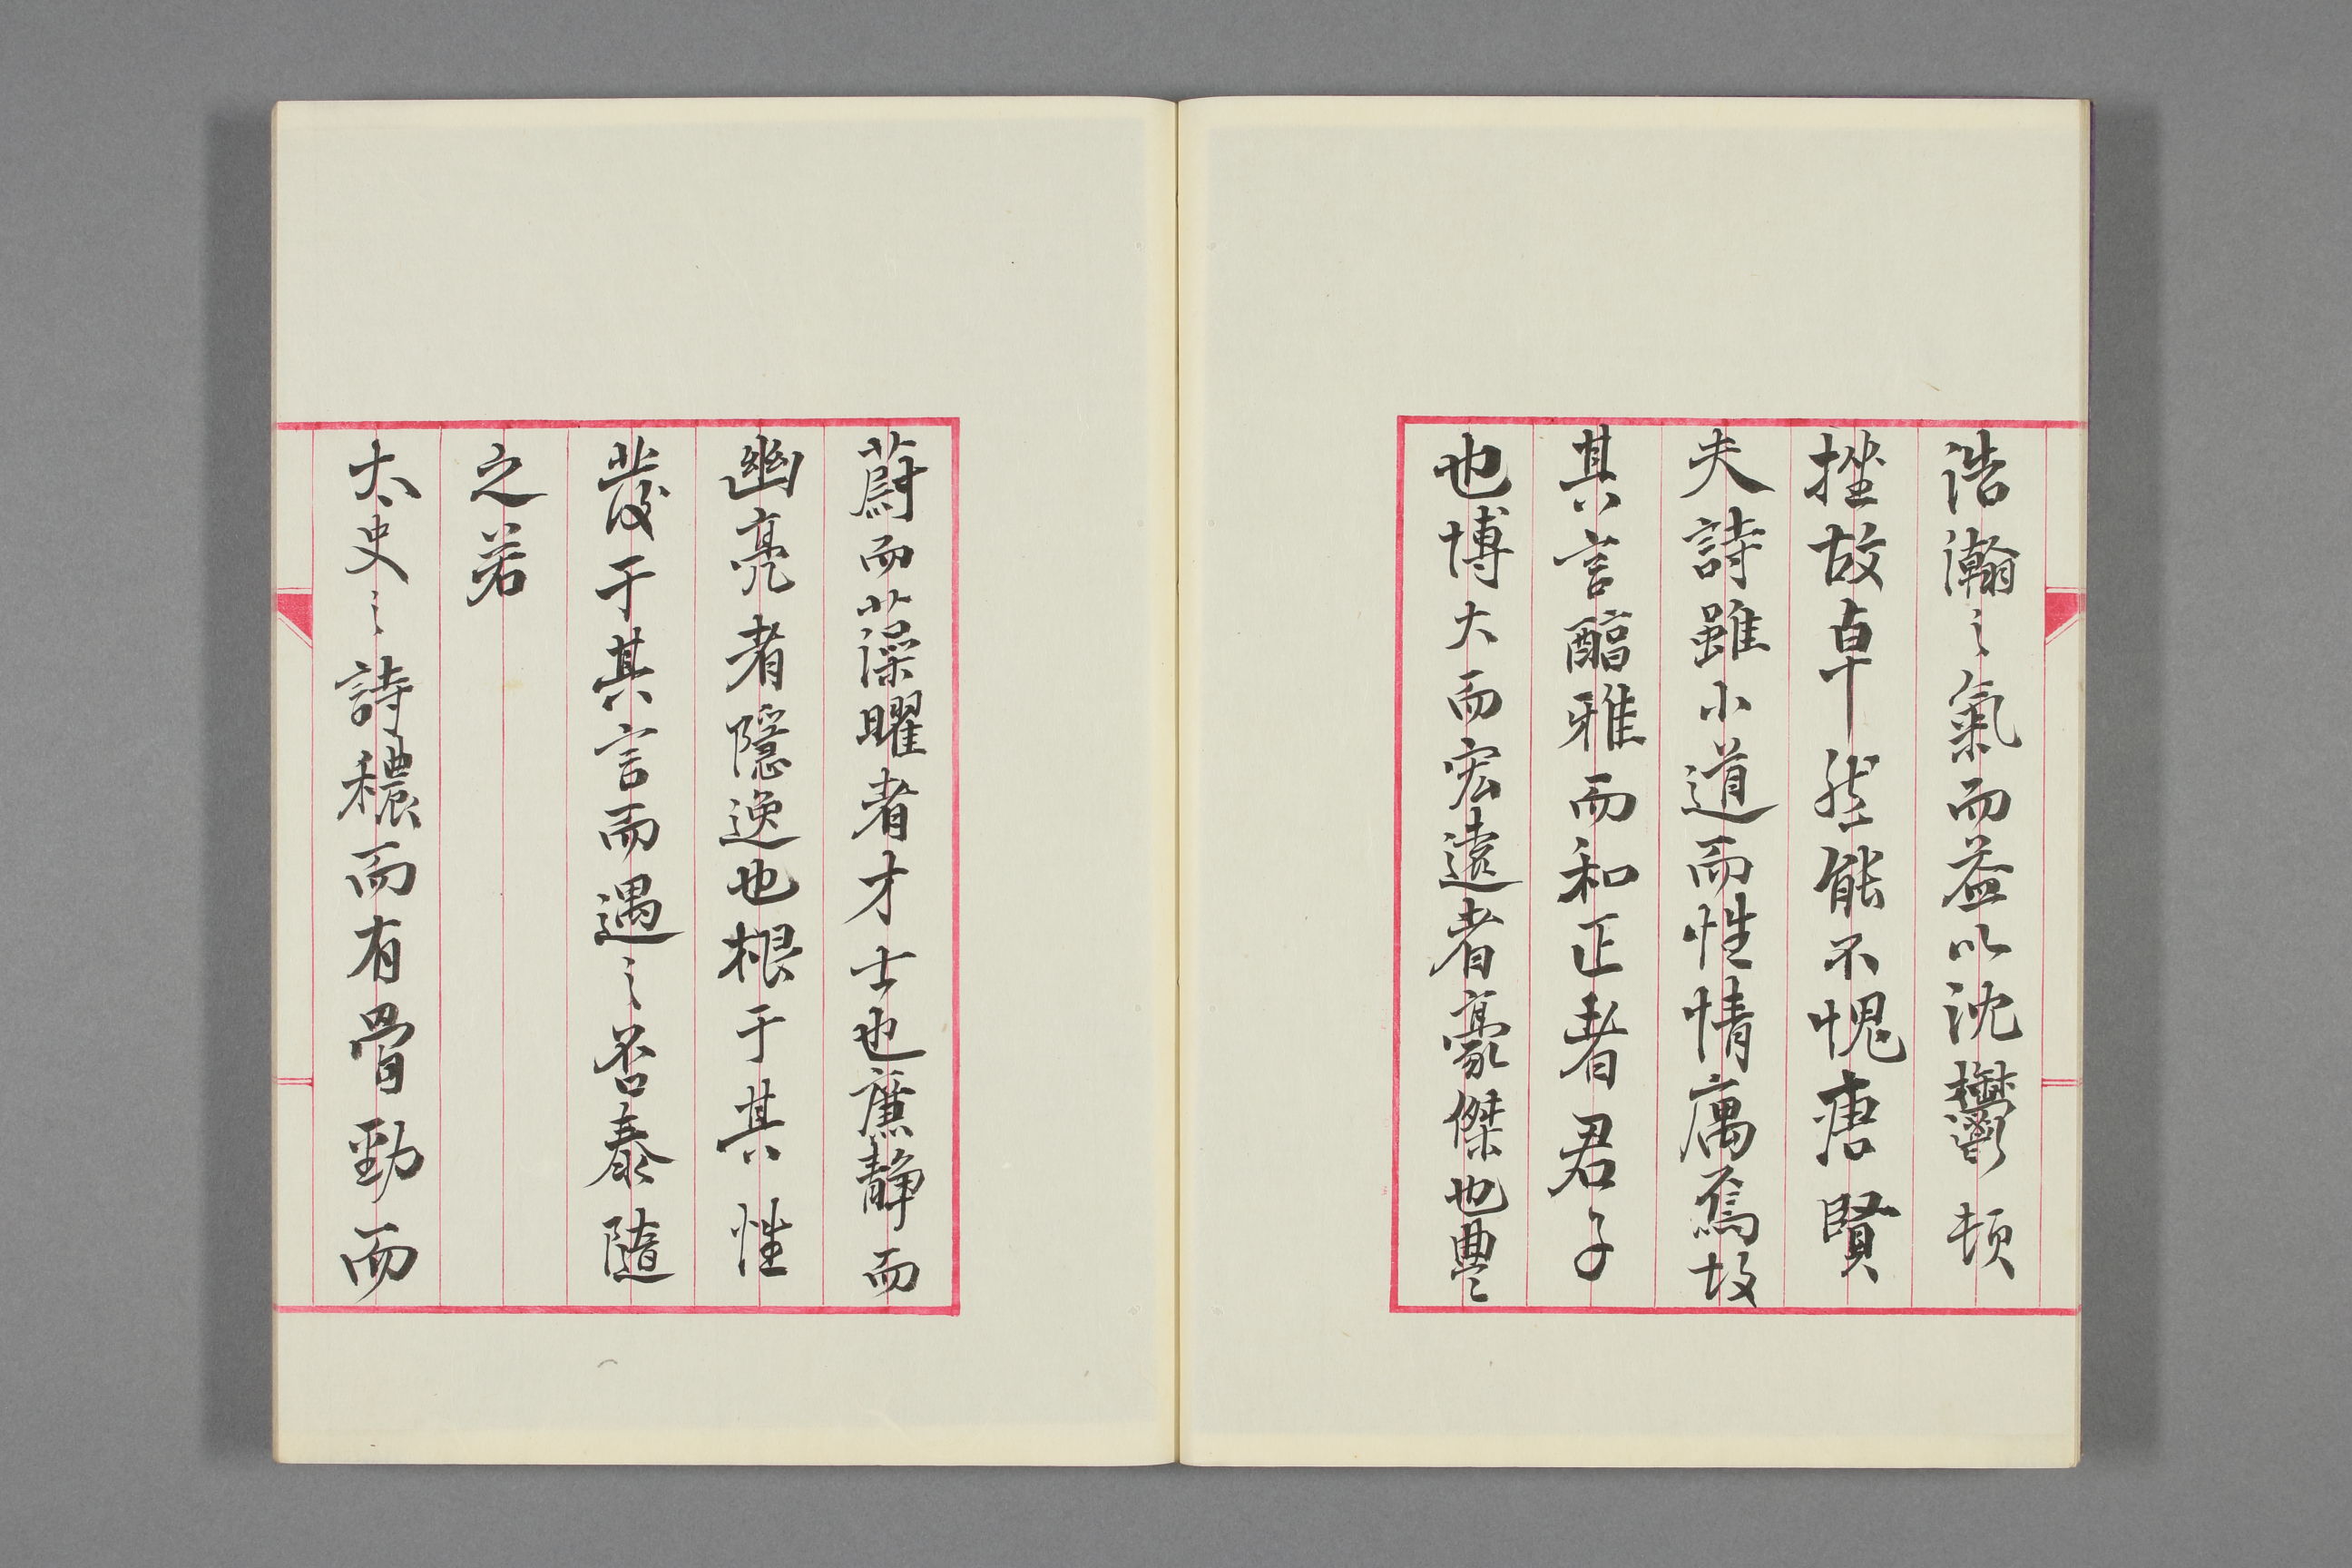 浩瀚之氣而益以沈鬱頓
挫故卓然能不愧唐賢
夫詩雖小道而性情寓焉故
其言醖雅而和正者君子
也博大而宏遠者豪傑也豊
蔚而藻曜者才士也廉静而
幽亮者隱逸也根于其性
發于其言而遇之否泰隨
之若
太史之詩穠而有骨勁而